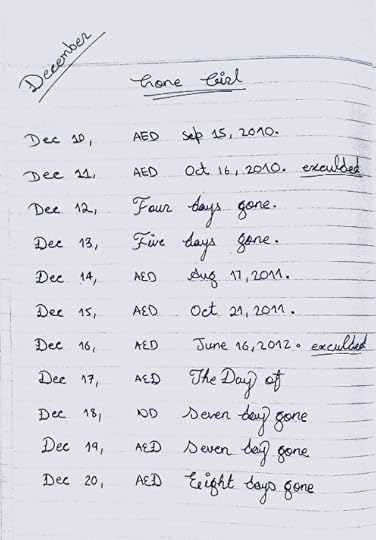 December
Gone Girl
Dec 10, AED Sep 15, 2010.
Dec 11, AED Oct 16, 2010. exculded
Dec 12, Four days gone.
Dec 13, Five days gone.
Dec 14, AED Aug 17, 2011.
Dec 15, AED Oct 21, 2011.
Dec 16, AED June 16, 2012. exculded
Dec 17, AED The Day of
Dec 18, ND Seven day gone
Dec 19, AED Seven day gone
Dec 20, AED Eeight days gone